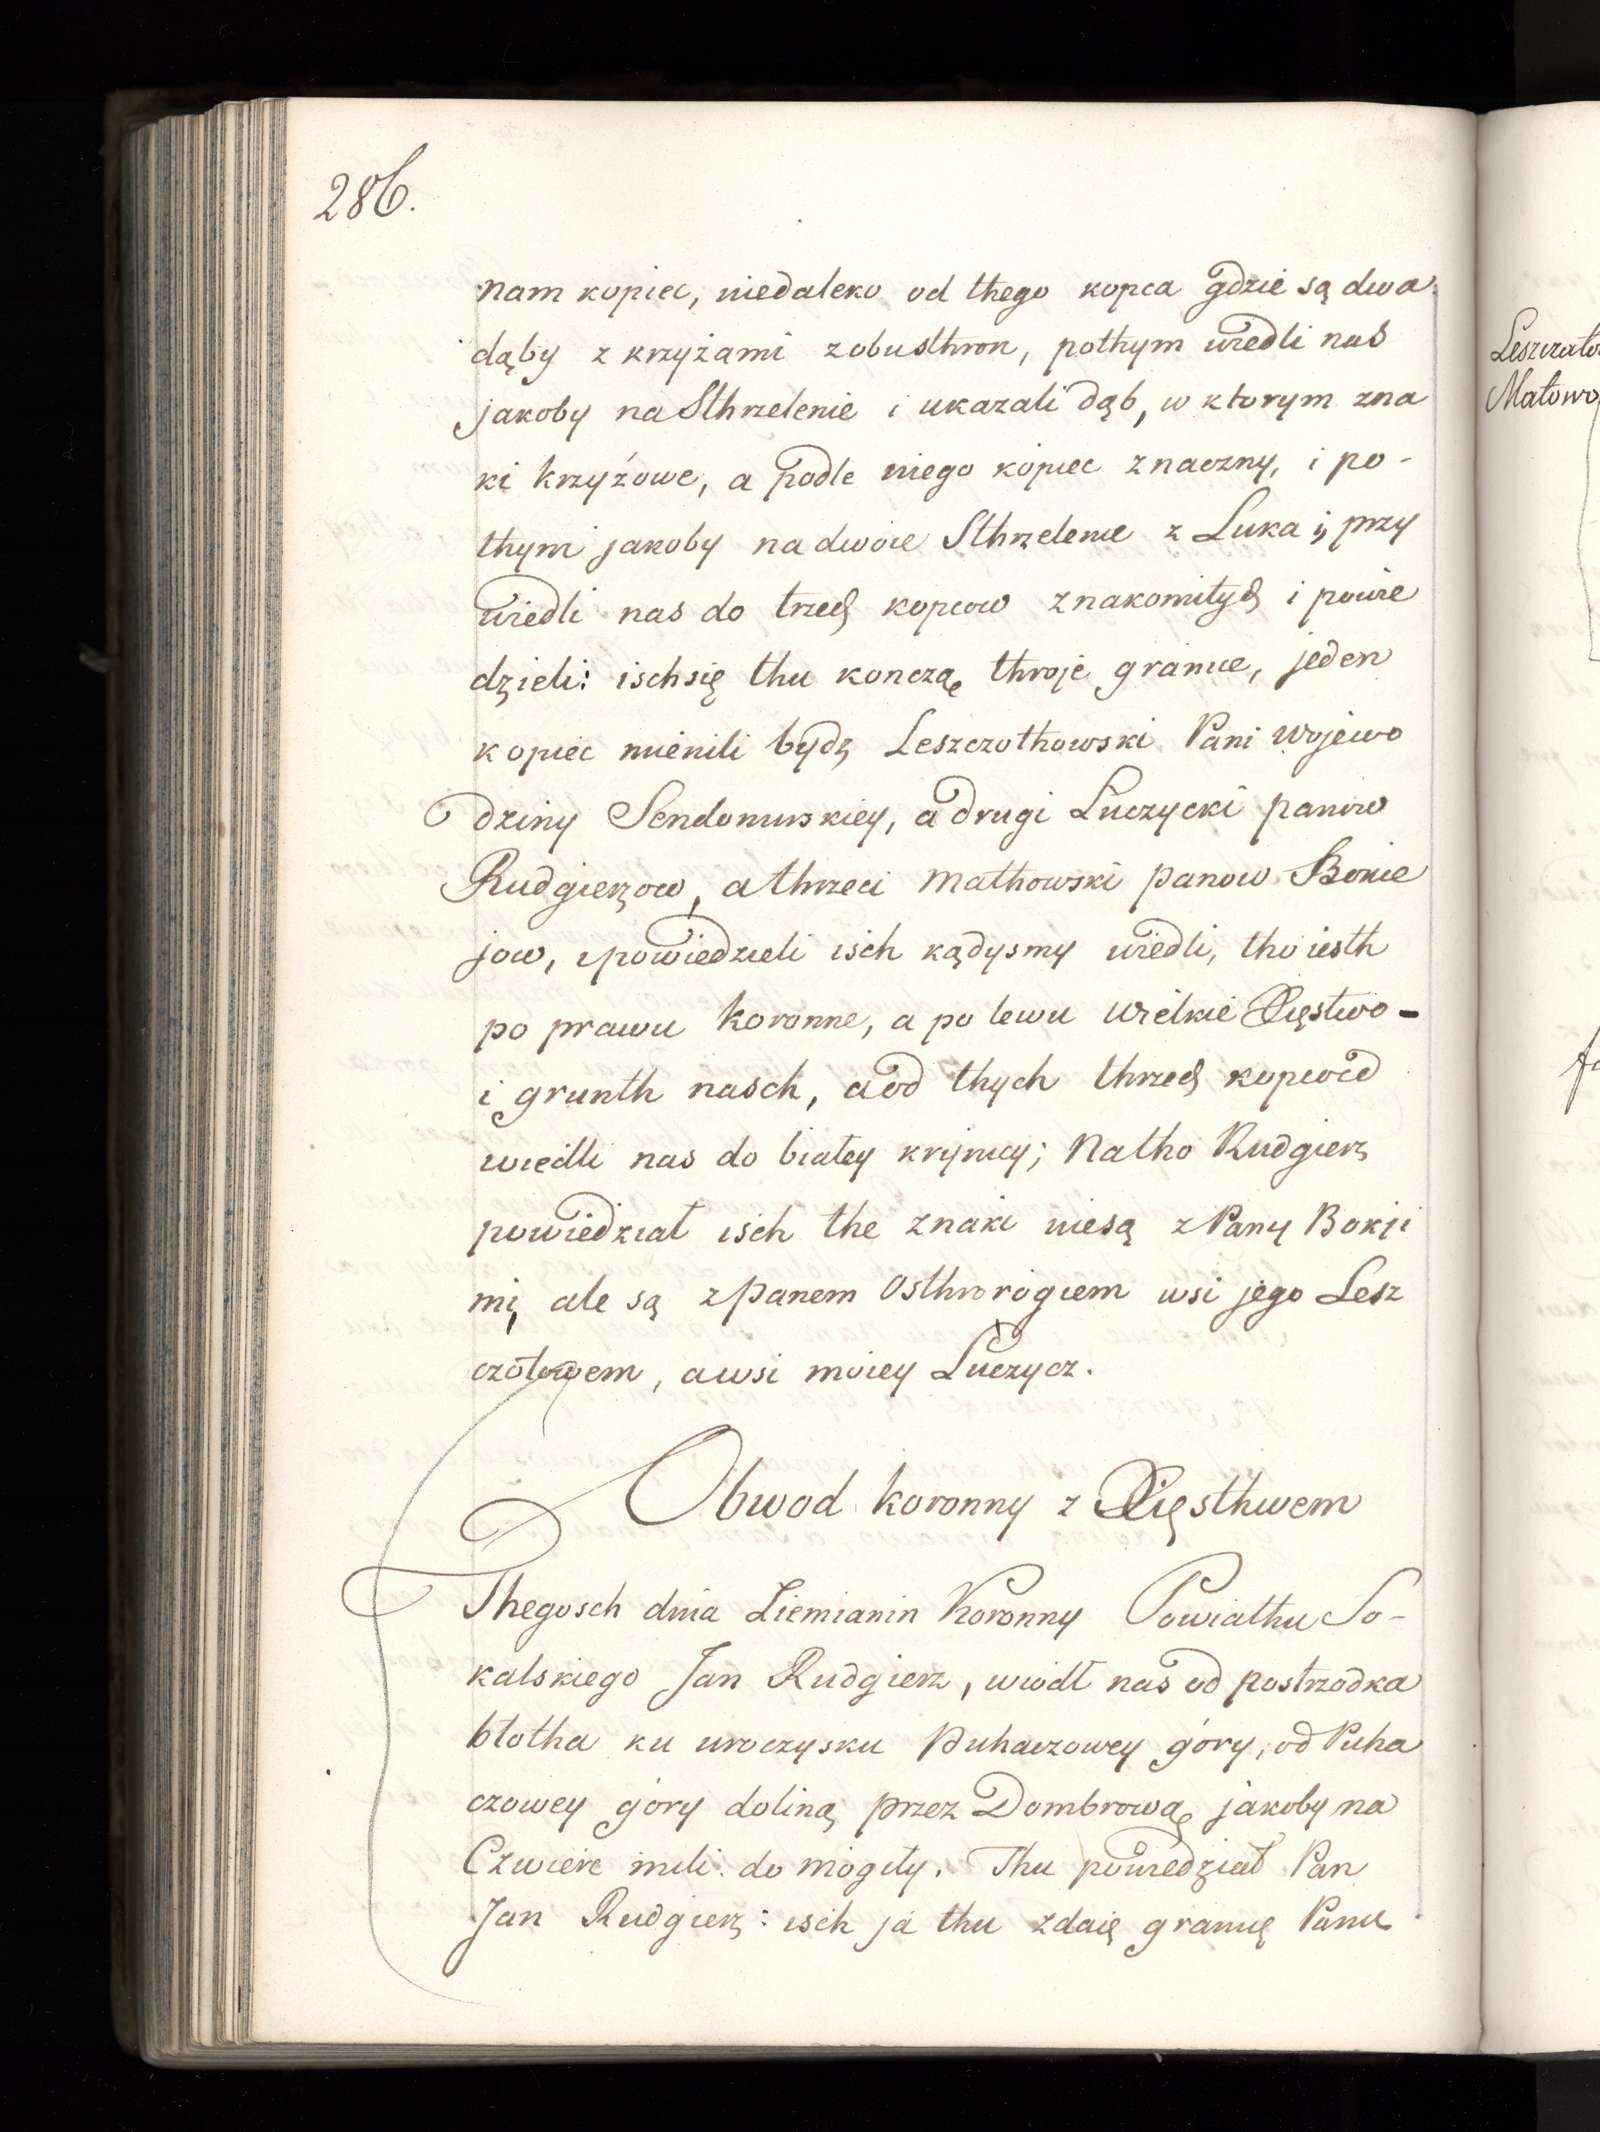 286.
nam kopiec, niedaleko od thego kopca gdzie są dwa
dąby z krzyżami zobusthron, pothym wiedli nas
jakoby na Sthrzelenie i ukazali dąb, w ktorym zna
ki krzyżowe, a podle niego kopiec znaczny, i po-
thym jakoby na dwoie Sthrzelenie z Luka i, przy
wiedli nas do trzech kopcow znakomitych i powie
dzieli: ischsię thu konczą throje granice, jeden
kopiec mienili bydz Leszczothowski Pani Wojewo
dziny Sendomirskiey, a drugi Luczycki panow
Rudgierzow, a thrzeci Mathowski panow Bokie
jow, ipowiedzieli isch kądysmy wiedli, tho iesth
po prawu Koronne, a po lewu wielkie Xięstwo-
i grunth nasch, a od thych thrzech kopcow
wiedli nas do białey krynicy; Natho Rudgierz
powiedział isch the znaki niesą z Pany Bokji
mi, ale są z Panem Osthrorogiem wsi jego Lesz
czotowem, a wsi moiey Luczycz.
Obwod koronny z Xięsthwem
Thegosch dnia Ziemianin Koronny Powiathu So-
kalskiego Jan Rudgierz, wiodł nas od postrzodka
błotha ku uroczysku Puhaczowey góry, od Puha
czowey góry doliną przez Dombrowę jakoby na
Czwierc mili do mogiły. Thu powiedział Pan
Jan Rudgierz: isch ja thu zdaię granicę Panu
Leszczato
Małowo